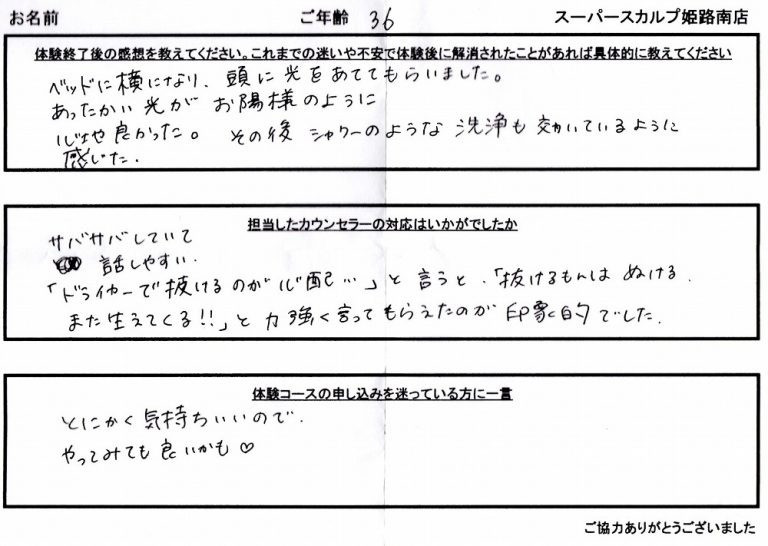 お名前 ご年齢 36 スーパースカルプ姫路南店
体験終了後の感想を教えてください。これまでの迷いや不安で体験後に解消されたことがあれば具体的に教えてください
ベッドに横になり、頭に光をあててもらいました。
あったかい光が お陽様のように
心地良かった。 その後 シャワーのような 洗浄も 効いているように
感じた.
担当したカウンセラーの対応はいかがでしたか
サバサバしていて
話しやすい.
「ドライヤーで抜けるのが心配…」と 言うと、「抜けるもんは ぬける.
また生えてくる!!」と 力強く言ってもらえたのが 印象的でした.
体験コースの申し込みを迷っている方に一言
とにかく気持ちいいので.
やってみても良いかも♡
ご協力ありがとうございました